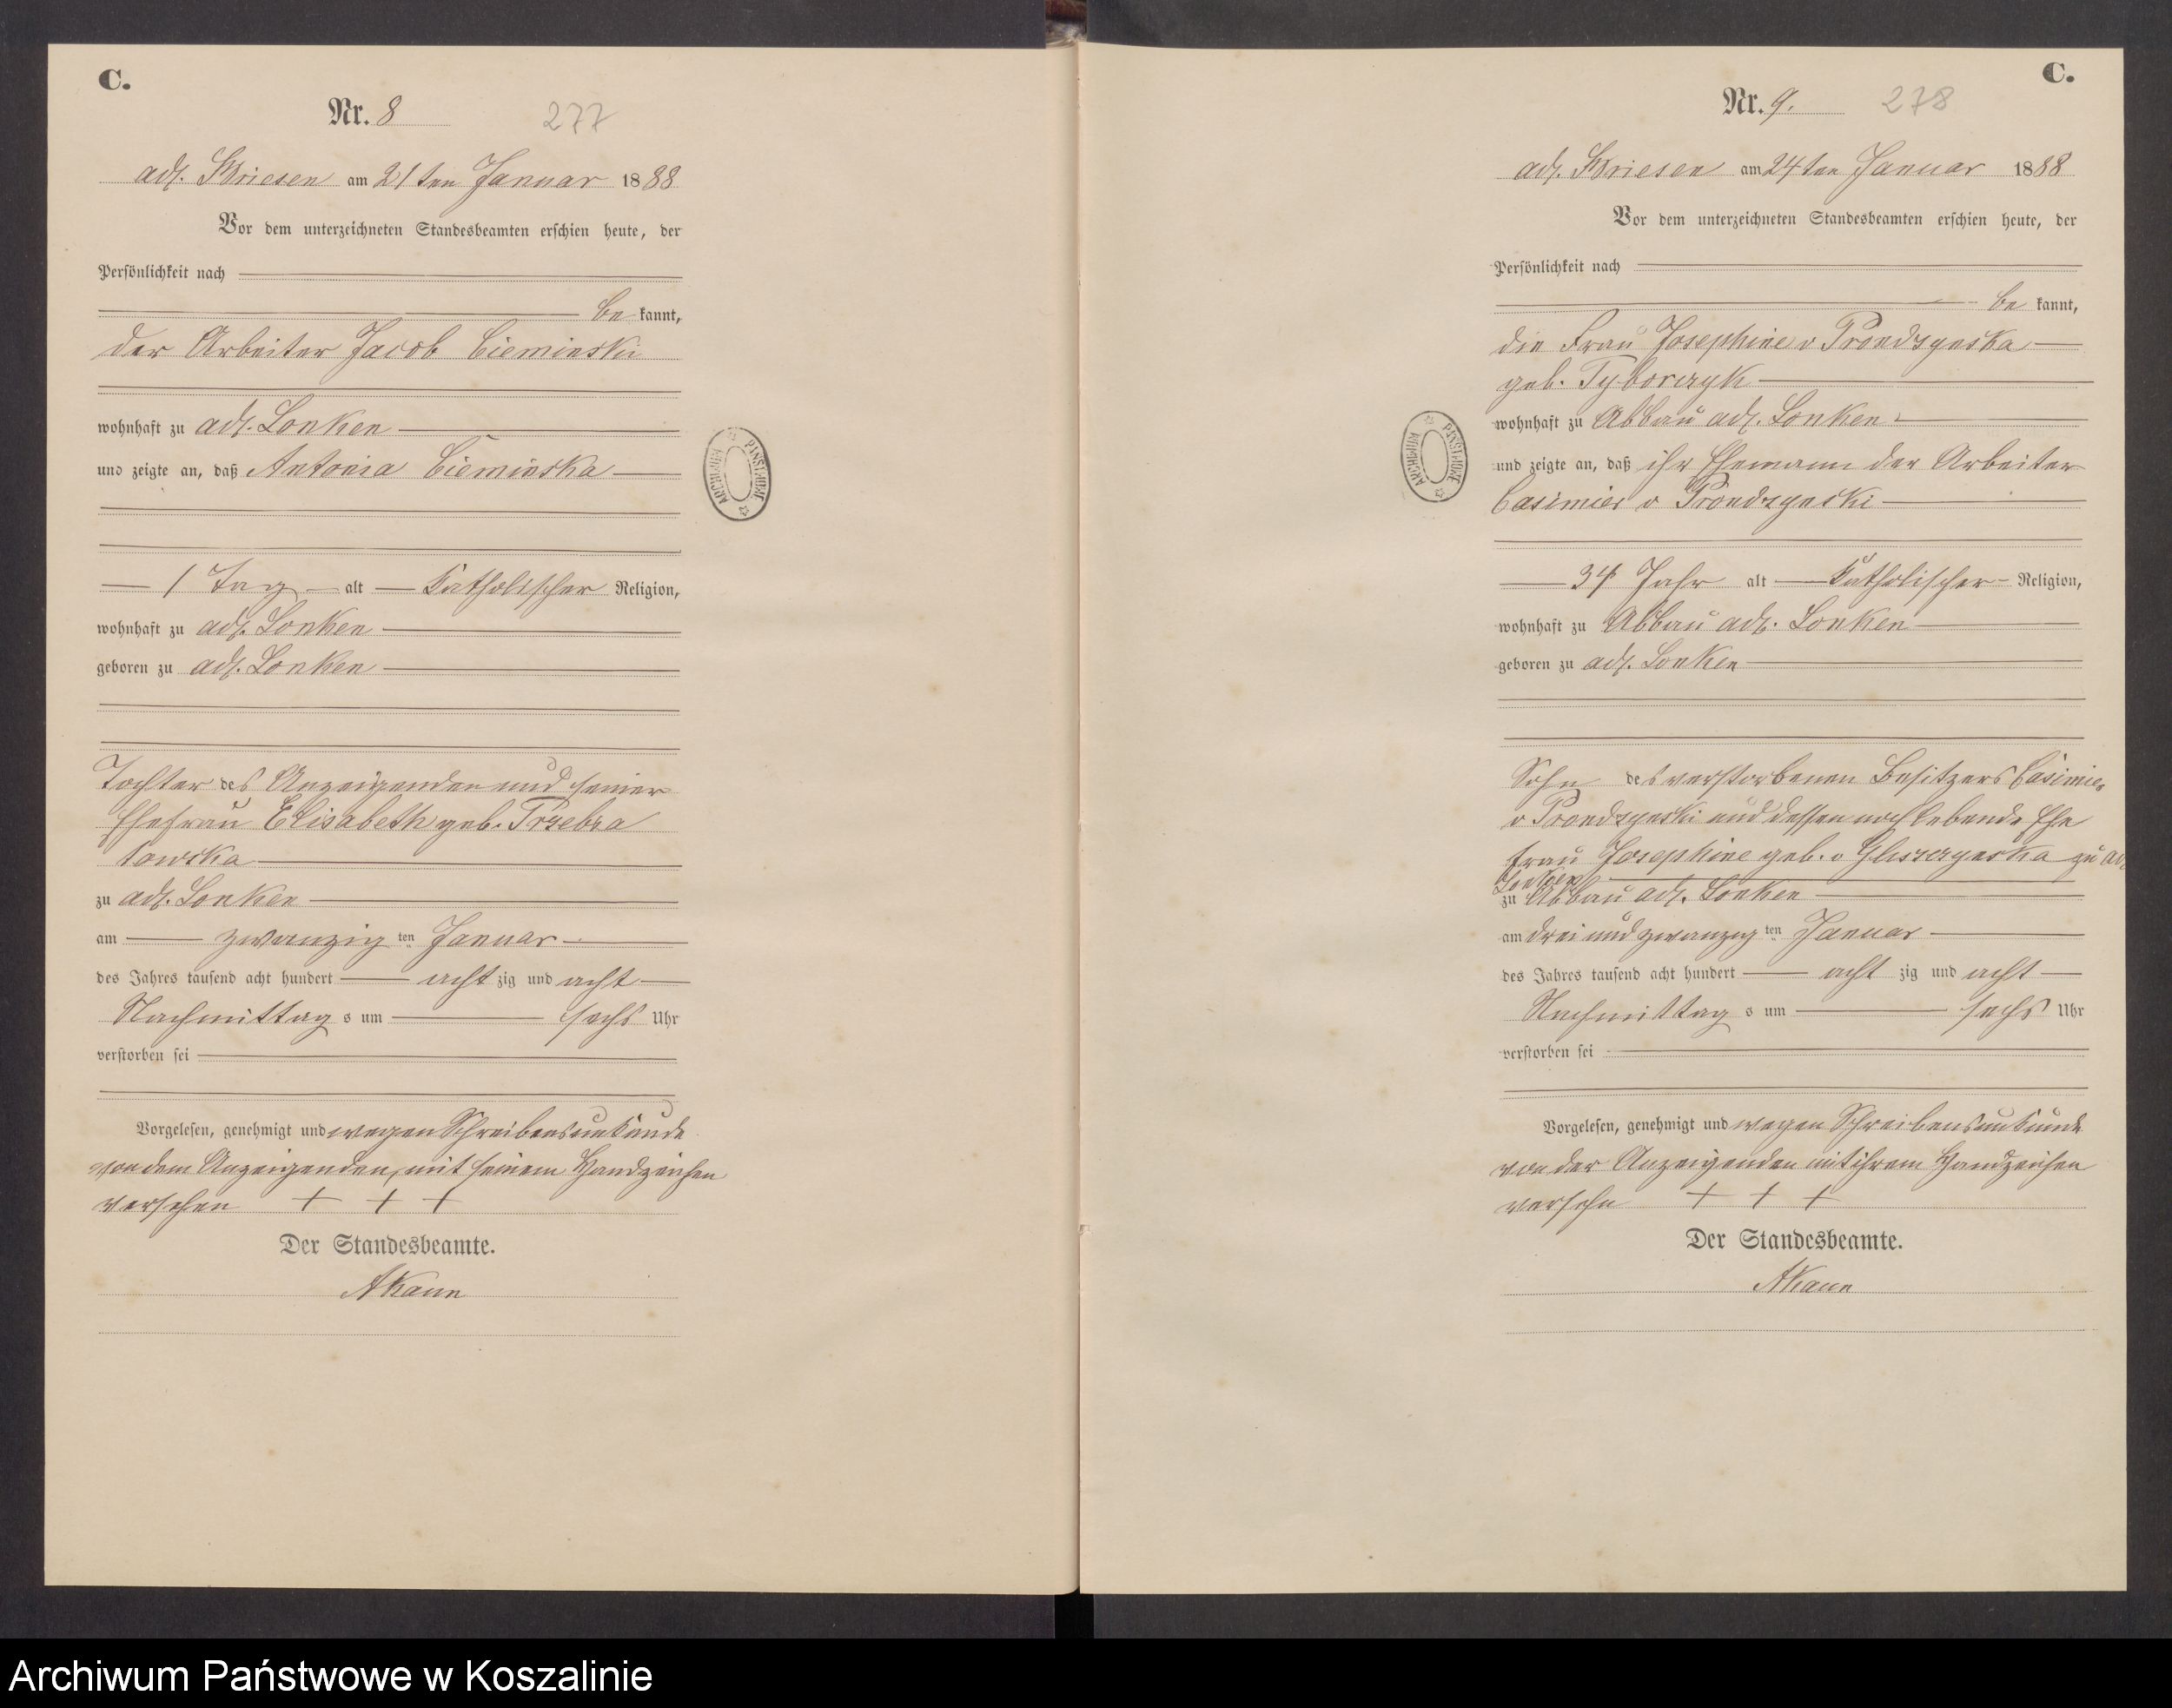 C.
Nr. 8
277
adl. Briesen am 21ten Januar 1888
Vor dem unterzeichneten Standesbeamten erschien heute, der
Persönlichkeit nach
be kannt,
der Arbeiter Jacob Cieminski
wohnhaft zu adl. Lonken
und zeigte an, daß Antonia Cieminska
1 Tag alt Katholischer Religion,
wohnhaft zu adl. Lonken
geboren zu adl. Lonken
Tochter des Anzeigenden und seiner
Ehefrau Elisabeth geb. Przebia
towska
zu adl. Lonken
am zwanzig ten Januar
des Jahres tausend acht hundert acht zig und acht
Nachmittag s um sechs Uhr
verstorben sei
Vorgelesen, genehmigt und wegen Schreibensunkunde
von dem Anzeigenden, mit seinem Handzeichen
versehen + + +
Der Standesbeamte.
AKann
ARCHIWUM PAŃSTWOWE
C.
Nr. 9.
278
adl. Briesen am 24ten Januar 1888
Vor dem unterzeichneten Standesbeamten erschien heute, der
Persönlichkeit nach
be kannt,
die Frau Josephine v Prondzynska
geb. Tyborczyk
wohnhaft zu Abbau adl. Lonken
und zeigte an, daß ihr Ehemann der Arbeiter
Casimier v Prondzynski
34 Jahr alt Katholischer Religion,
wohnhaft zu Abbau adl. Lonken
geboren zu adl. Lonken
Sohn des verstorbenen Besitzers Casimier
v Prondzynski und dessen noch lebende Ehe
frau Josephine geb. v zu adl.
Lonken
zu Abbau adl. Lonken
am drei und zwanzig ten Januar
des Jahres tausend acht hundert acht zig und acht
Nachmittag s um sechs Uhr
verstorben sei
Vorgelesen, genehmigt und wegen Schreibensunkunde
von der Anzeigenden mit ihrem Handzeichen
versehn + + +
Der Standesbeamte.
AKann
ARCHIWUM PAŃSTWOWE
Archiwum Państwowe w Koszalinie